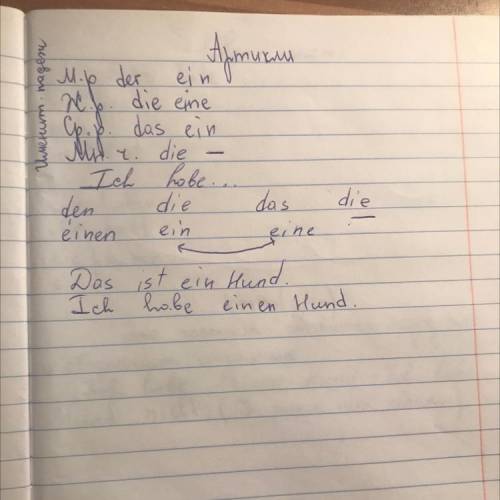 Артикли
Именит. падеж
М.р der ein
Ж.р. die eine
Ср.р. das ein
Мн.ч. die —
Ich habe...
den die das die
einen ein eine
Das ist ein Hund.
Ich habe einen Hund.